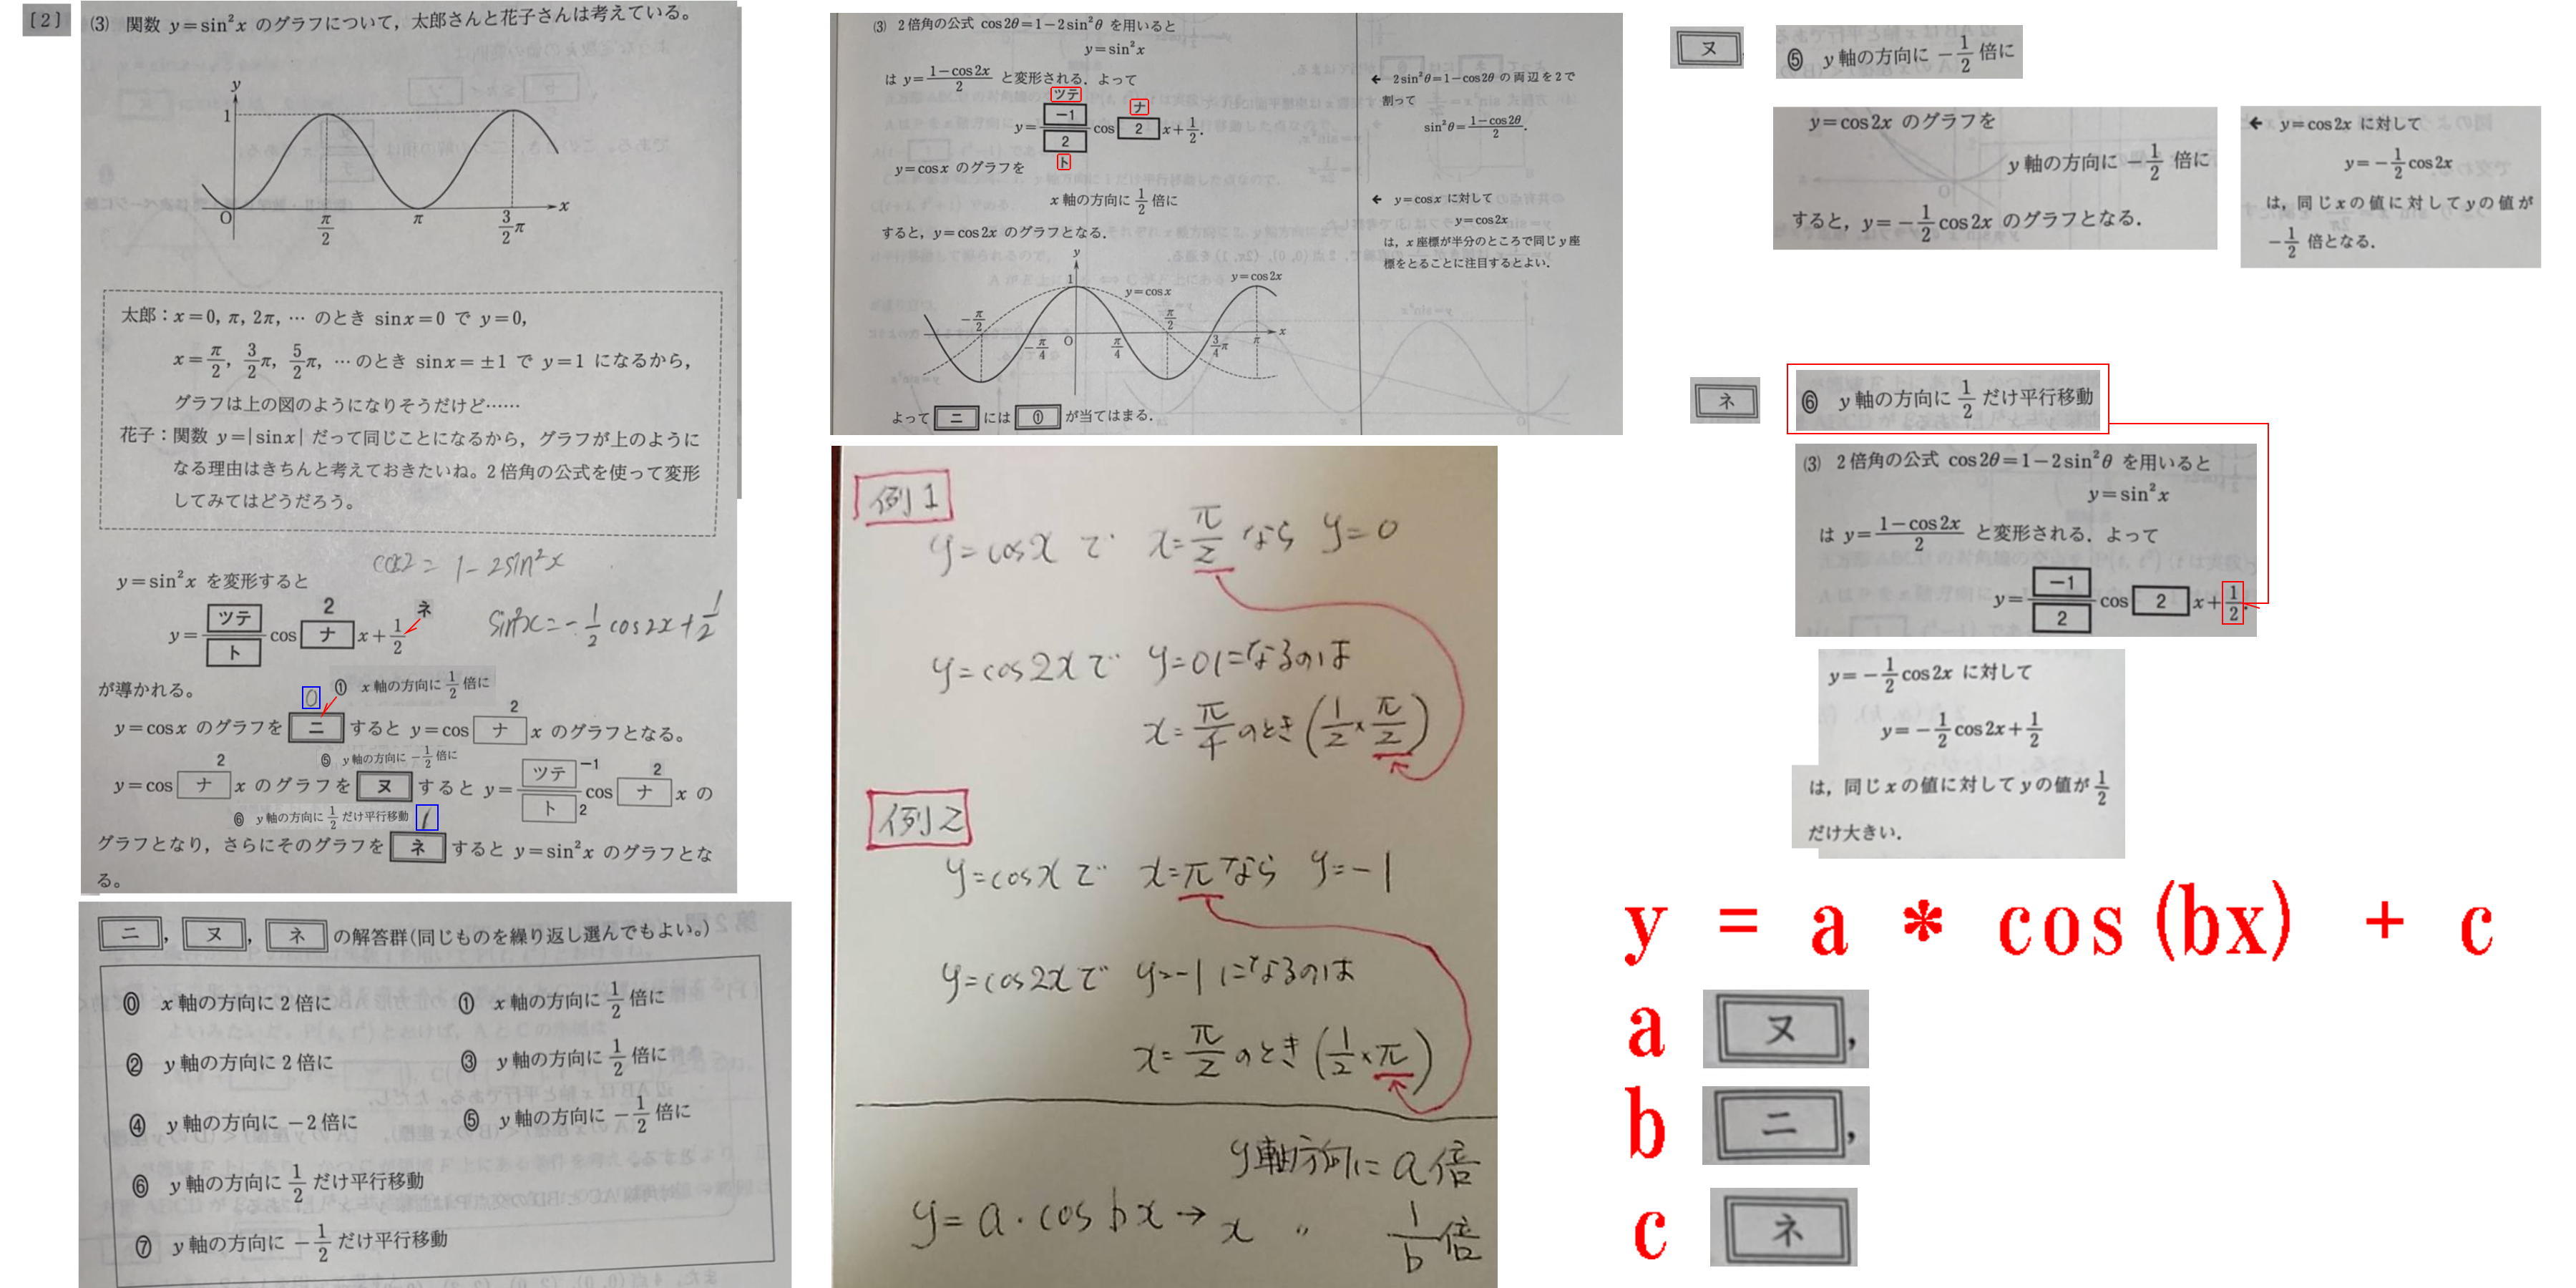 〔2〕
(3) 関数 y=sin²x のグラフについて，太郎さんと花子さんは考えている。
y
1
O
π/2
π
3/2 π
x
太郎：x=0, π, 2π, … のとき sinx=0 で y=0,
x=π/2, 3/2 π, 5/2 π, … のとき sinx=±1 で y=1 になるから,
グラフは上の図のようになりそうだけど……
花子：関数 y=|sinx| だって同じことになるから，グラフが上のように
なる理由はきちんと考えておきたいね。2倍角の公式を使って変形
してみてはどうだろう。
cos2= 1-2sin²x
y=sin²x を変形すると
y= ツテ/ト cos ナ x+1/2
2
ネ
sin²x=-1/2 cos2x+1/2
が導かれる。
0
① x軸の方向に 1/2 倍に
2
y=cosx のグラフを ニ すると y=cos ナ x のグラフとなる。
2
⑤ y軸の方向に -1/2 倍に
-1
2
y=cos ナ x のグラフを ヌ すると y= ツテ/ト cos ナ x の
2
⑥ y軸の方向に 1/2 だけ平行移動
1
グラフとなり，さらにそのグラフを ネ すると y=sin²x のグラフとな
る。
ニ, ヌ, ネ の解答群(同じものを繰り返し選んでもよい。)
⓪ x軸の方向に2倍に
① x軸の方向に 1/2 倍に
② y軸の方向に2倍に
③ y軸の方向に 1/2 倍に
④ y軸の方向に -2倍に
⑤ y軸の方向に -1/2 倍に
⑥ y軸の方向に 1/2 だけ平行移動
⑦ y軸の方向に -1/2 だけ平行移動
(3) 2倍角の公式 cos2θ=1-2sin²θ を用いると
y=sin²x
は y=(1-cos2x)/2 と変形される．よって
← 2sin²θ=1-cos2θ の両辺を2で
割って
sin²θ=(1-cos2θ)/2.
ツテ
ナ
y= -1/2 cos 2 x+1/2.
ト
y=cosx のグラフを
x軸の方向に 1/2 倍に
すると，y=cos2x のグラフとなる．
← y=cosx に対して
y=cos2x
は，x座標が半分のところで同じy座
標をとることに注目するとよい．
y
1
y=cosx
y=cos2x
-π/2
-π/4
O
π/4
π/2
3/4 π
π
x
よって ニ には ① が当てはまる．
例1
y=cosx で x=π/2 なら y=0
y=cos2x で y=0になるのは
x=π/4 のとき (1/2×π/2)
例2
y=cosx で x=π なら y=-1
y=cos2x で y=-1になるのは
x=π/2 のとき (1/2×π)
y軸方向に a倍
y=a・cos bx → x 〃 1/b倍
ヌ
⑤ y軸の方向に -1/2 倍に
y=cos2x のグラフを
y軸の方向に -1/2 倍に
すると，y=-1/2 cos2x のグラフとなる．
← y=cos2x に対して
y=-1/2 cos2x
は，同じxの値に対してyの値が
-1/2 倍となる．
ネ
⑥ y軸の方向に 1/2 だけ平行移動
(3) 2倍角の公式 cos2θ=1-2sin²θ を用いると
y=sin²x
は y=(1-cos2x)/2 と変形される．よって
y= -1/2 cos 2 x+1/2.
y=-1/2 cos2x に対して
y=-1/2 cos2x+1/2
は，同じxの値に対してyの値が 1/2
だけ大きい．
y = a * cos(bx) + c
a ヌ,
b ニ,
c ネ